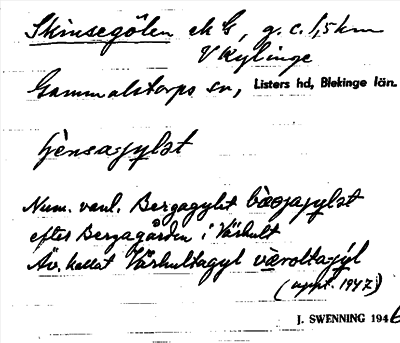 Skinsegölen ek C, g. c. 1,5 km
V Kylinge
Gammalstorps sn, Listers hd, Blekinge län.
Num. vanl. Bergagylet
efter Bergagården i Värhult
Äv. kallat Värhultagyl
(uppt. 1947)
J. SWENNING 1946